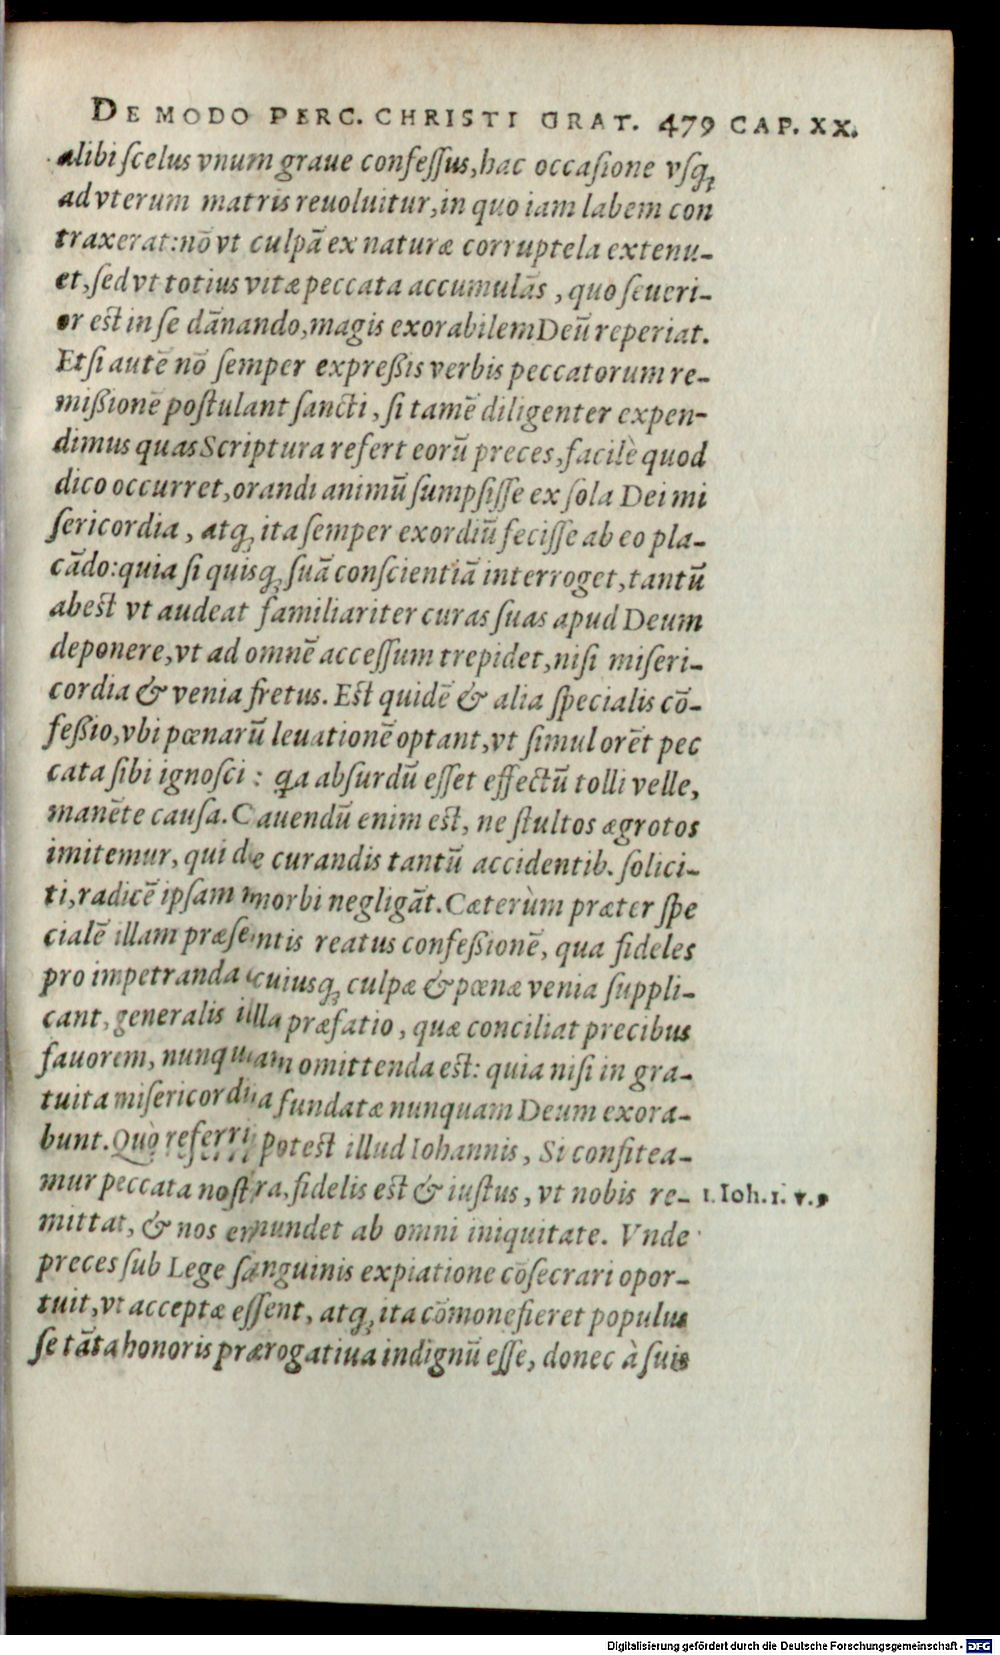 DE MODO PERC. CHRISTI GRAT. 479 CAP. XX.
alibi ſcelus vnum graue confeſſus, hac occaſione vſq;
ad vterum matris reuoluitur, in quo iam labem con
traxerat: nō vt culpā ex naturæ corruptela extenu-
et, ſed vt totius vitæ peccata accumulās, quo ſeueri-
or est in ſe dānando, magis exorabilem Deū reperiat.
Etſi autē nō ſemper expreßis verbis peccatorum re-
mißionē poſtulant ſancti, ſi tamē diligenter expen-
dimus quas Scriptura refert eorū preces, facilè quod
dico occurret, orandi animū ſumpſiſſe ex ſola Dei mi
ſericordia, atq; ita ſemper exordiū feciſſe ab eo pla-
cādo: quia ſi quisq; ſuā conſcientiā interroget, tantū
abest vt audeat familiariter curas ſuas apud Deum
deponere, vt ad omnē acceſſum trepidet, niſi miſeri-
cordia & venia fretus. Est quidē & alia ſpecialis cō-
feßio, vbi pœnarū leuationē optant, vt ſimul orēt pec
cata ſibi ignoſci: qa abſurdū eſſet effectū tolli velle,
manēte cauſa. Cauendū enim est, ne ſtultos ægrotos
imitemur, qui de curandis tantū accidentib. ſolici-
ti, radicē ipſam morbi negligāt. Cæterùm præter ſpe
cialē illam præſentis reatus confeßionē, qua fideles
pro impetranda cuiusq; culpæ & pœnæ venia ſuppli-
cant, generalis illa præfatio, quæ conciliat precibus
fauorem, nunquam omittenda est: quia niſi in gra-
tuita miſericordia fundatæ nunquam Deum exora-
bunt. Quò referri potest illud Iohannis, Si confitea-
mur peccata noſtra, fidelis est & iuſtus, vt nobis re- 1. Ioh. 1. v. 9
mittat, & nos emundet ab omni iniquitate. Vnde
preces ſub Lege ſanguinis expiatione cōſecrari opor-
tuit, vt acceptæ eſſent, atq; ita cōmonefieret populus
ſe tāta honoris prærogatiua indignū eſſe, donec à ſuis
Digitalisierung gefördert durch die Deutsche Forschungsgemeinschaft - DFG